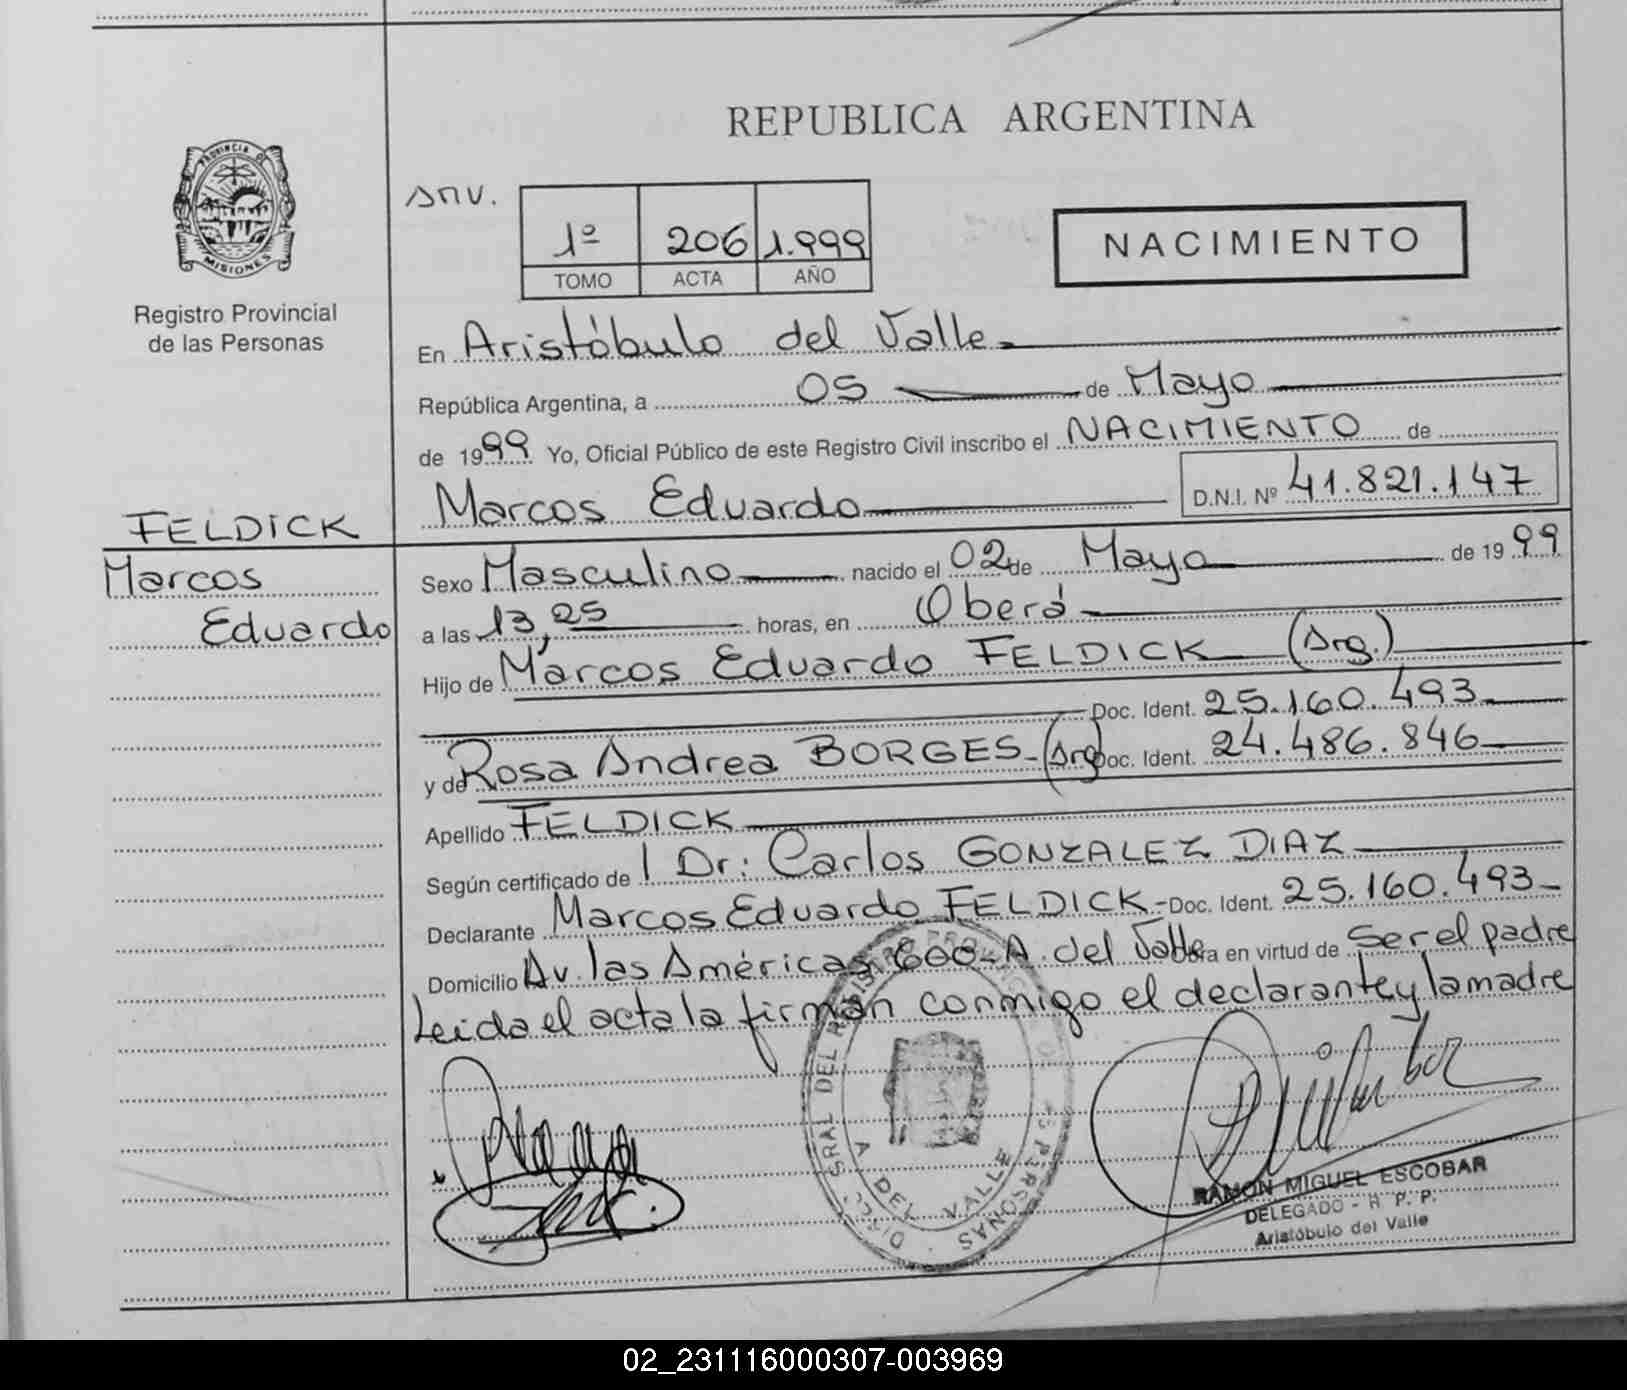 REPUBLICA ARGENTINA
PROVINCIA DE
MISIONES
Registro Provincial
de las Personas
1º 206 1.999
TOMO ACTA AÑO
NACIMIENTO
En Aristóbulo del Valle
República Argentina, a 05 de Mayo
de 1999 Yo, Oficial Público de este Registro Civil inscribo el NACIMIENTO de
Marcos Eduardo D.N.I. Nº 41.821.147
FELDICK
Marcos
Eduardo
Sexo Masculino nacido el 02 de Mayo de 1999
a las 13,25 horas, en Oberá
Hijo de Marcos Eduardo FELDICK (Arg.)
Doc. Ident. 25.160.493
y de Rosa Andrea BORGES - (Arg) Doc. Ident. 24.486.846
Apellido FELDICK
Según certificado de l Dr: Carlos GONZALEZ DIAZ
Declarante Marcos Eduardo FELDICK - Doc. Ident. 25.160.493
Domicilio Av. las Américas 600 - A. del Valle en virtud de ser el padre
Leida el acta la firman conmigo el declarante y la madre
A DEL VALLE
RAMON MIGUEL ESCOBAR
DELEGADO - R. P. P.
Aristóbulo del Valle
02_231116000307-003969